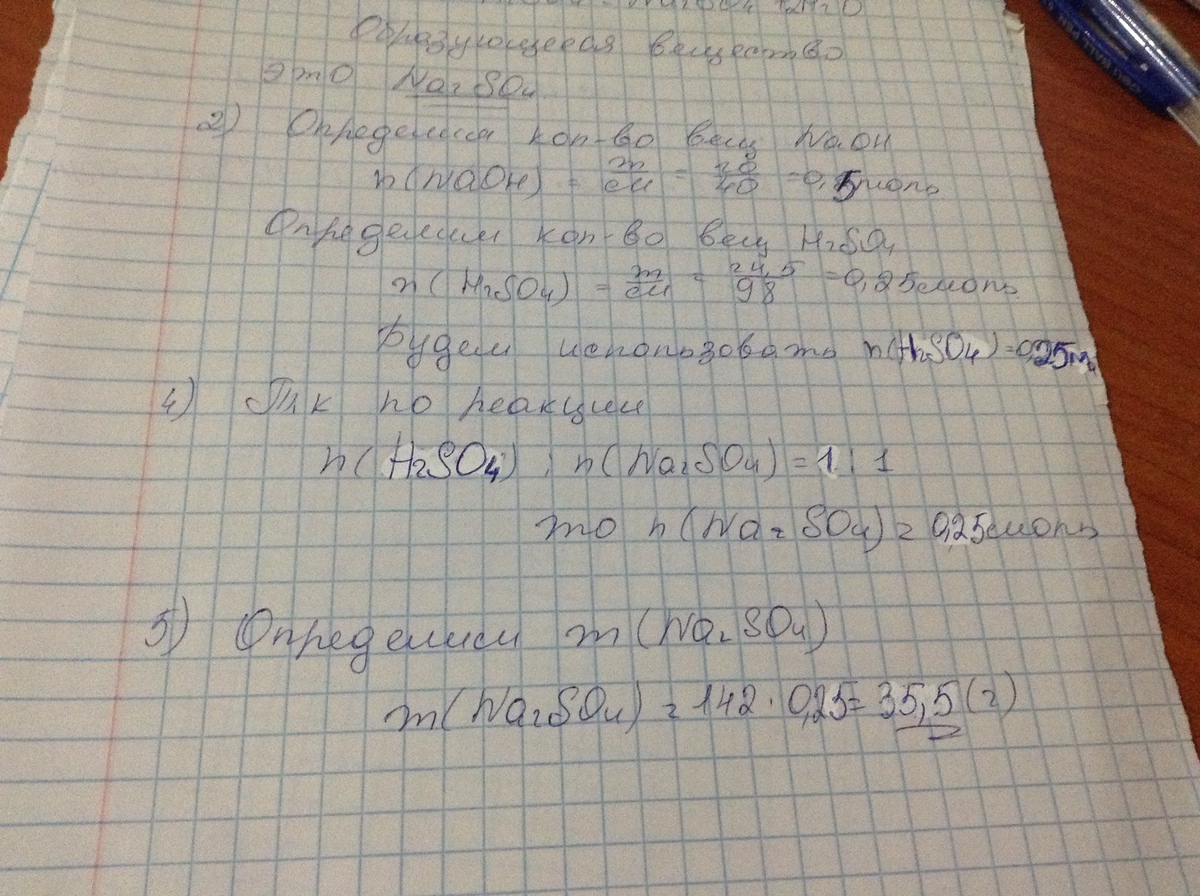 Na2SO4 + 2H2O
Образующееся вещество
это Na2SO4
2) Определим кол-во вещ NaOH
n(NaOH) = m/M = 20/40 = 0,5моль
Определим кол-во вещ H2SO4
n(H2SO4) = m/M = 24,5/98 = 0,25моль
Будем использовать n(H2SO4)=0,25м
4) Т.к по реакции
n(H2SO4) : n(Na2SO4) = 1 : 1
то n(Na2SO4) = 0,25моль
5) Определим m(Na2SO4)
m(Na2SO4) = 142 · 0,25 = 35,5 (г)